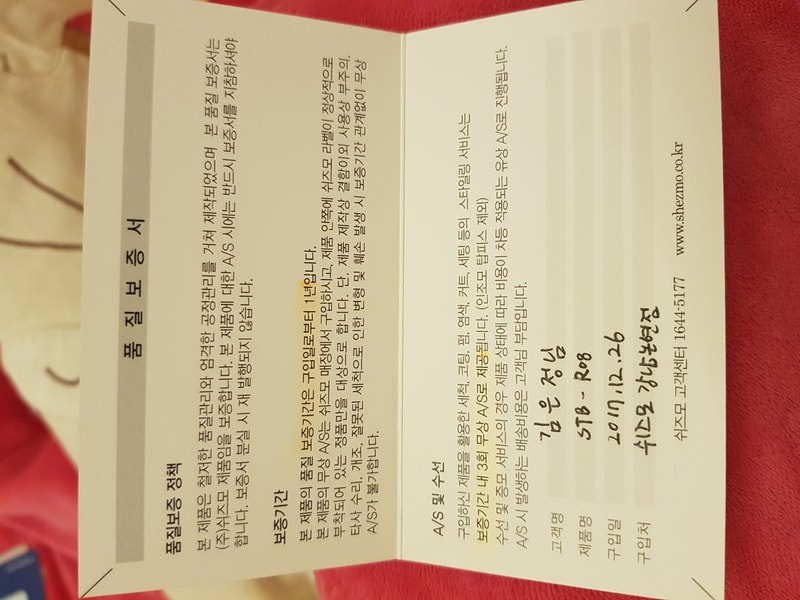 품 질 보 증 서
품질보증 정책
본 제품은 철저한 품질관리와 엄격한 공정관리를 거쳐 제작되었으며 본 품질 보증서는
(주)쉬즈모 제품임을 보증합니다. 본 제품에 대한 A/S 시에는 반드시 보증서를 지참하셔야
합니다. 보증서 분실 시 재 발행되지 않습니다.
보증기간
본 제품의 품질 보증기간은 구입일로부터 1년입니다.
본 제품의 무상 A/S는 쉬즈모 매장에서 구입하시고, 제품 안쪽에 쉬즈모 라벨이 정상적으로
부착되어 있는 정품만을 대상으로 합니다. 단, 제품 제작상 결함이외 사용상 부주의,
타사 수리, 개조, 잘못된 세척으로 인한 변형 및 훼손 발생 시 보증기간 관계없이 무상
A/S가 불가합니다.
A/S 및 수선
구입하신 제품을 활용한 세척, 코팅, 펌, 염색, 커트, 세팅 등의 스타일링 서비스는
보증기간 내 3회 무상 A/S로 제공됩니다. (인조모 탑피스 제외)
수선 및 증모 서비스의 경우 제품 상태에 따라 비용이 차등 적용되는 유상 A/S로 진행됩니다.
A/S 시 발생하는 배송비용은 고객님 부담입니다.
고객명 김은정님
제품명 STB-R08
구입일 2017.12.26
구입처 쉬즈모 강남논현점
쉬즈모 고객센터 1644-5177 www.shezmo.co.kr